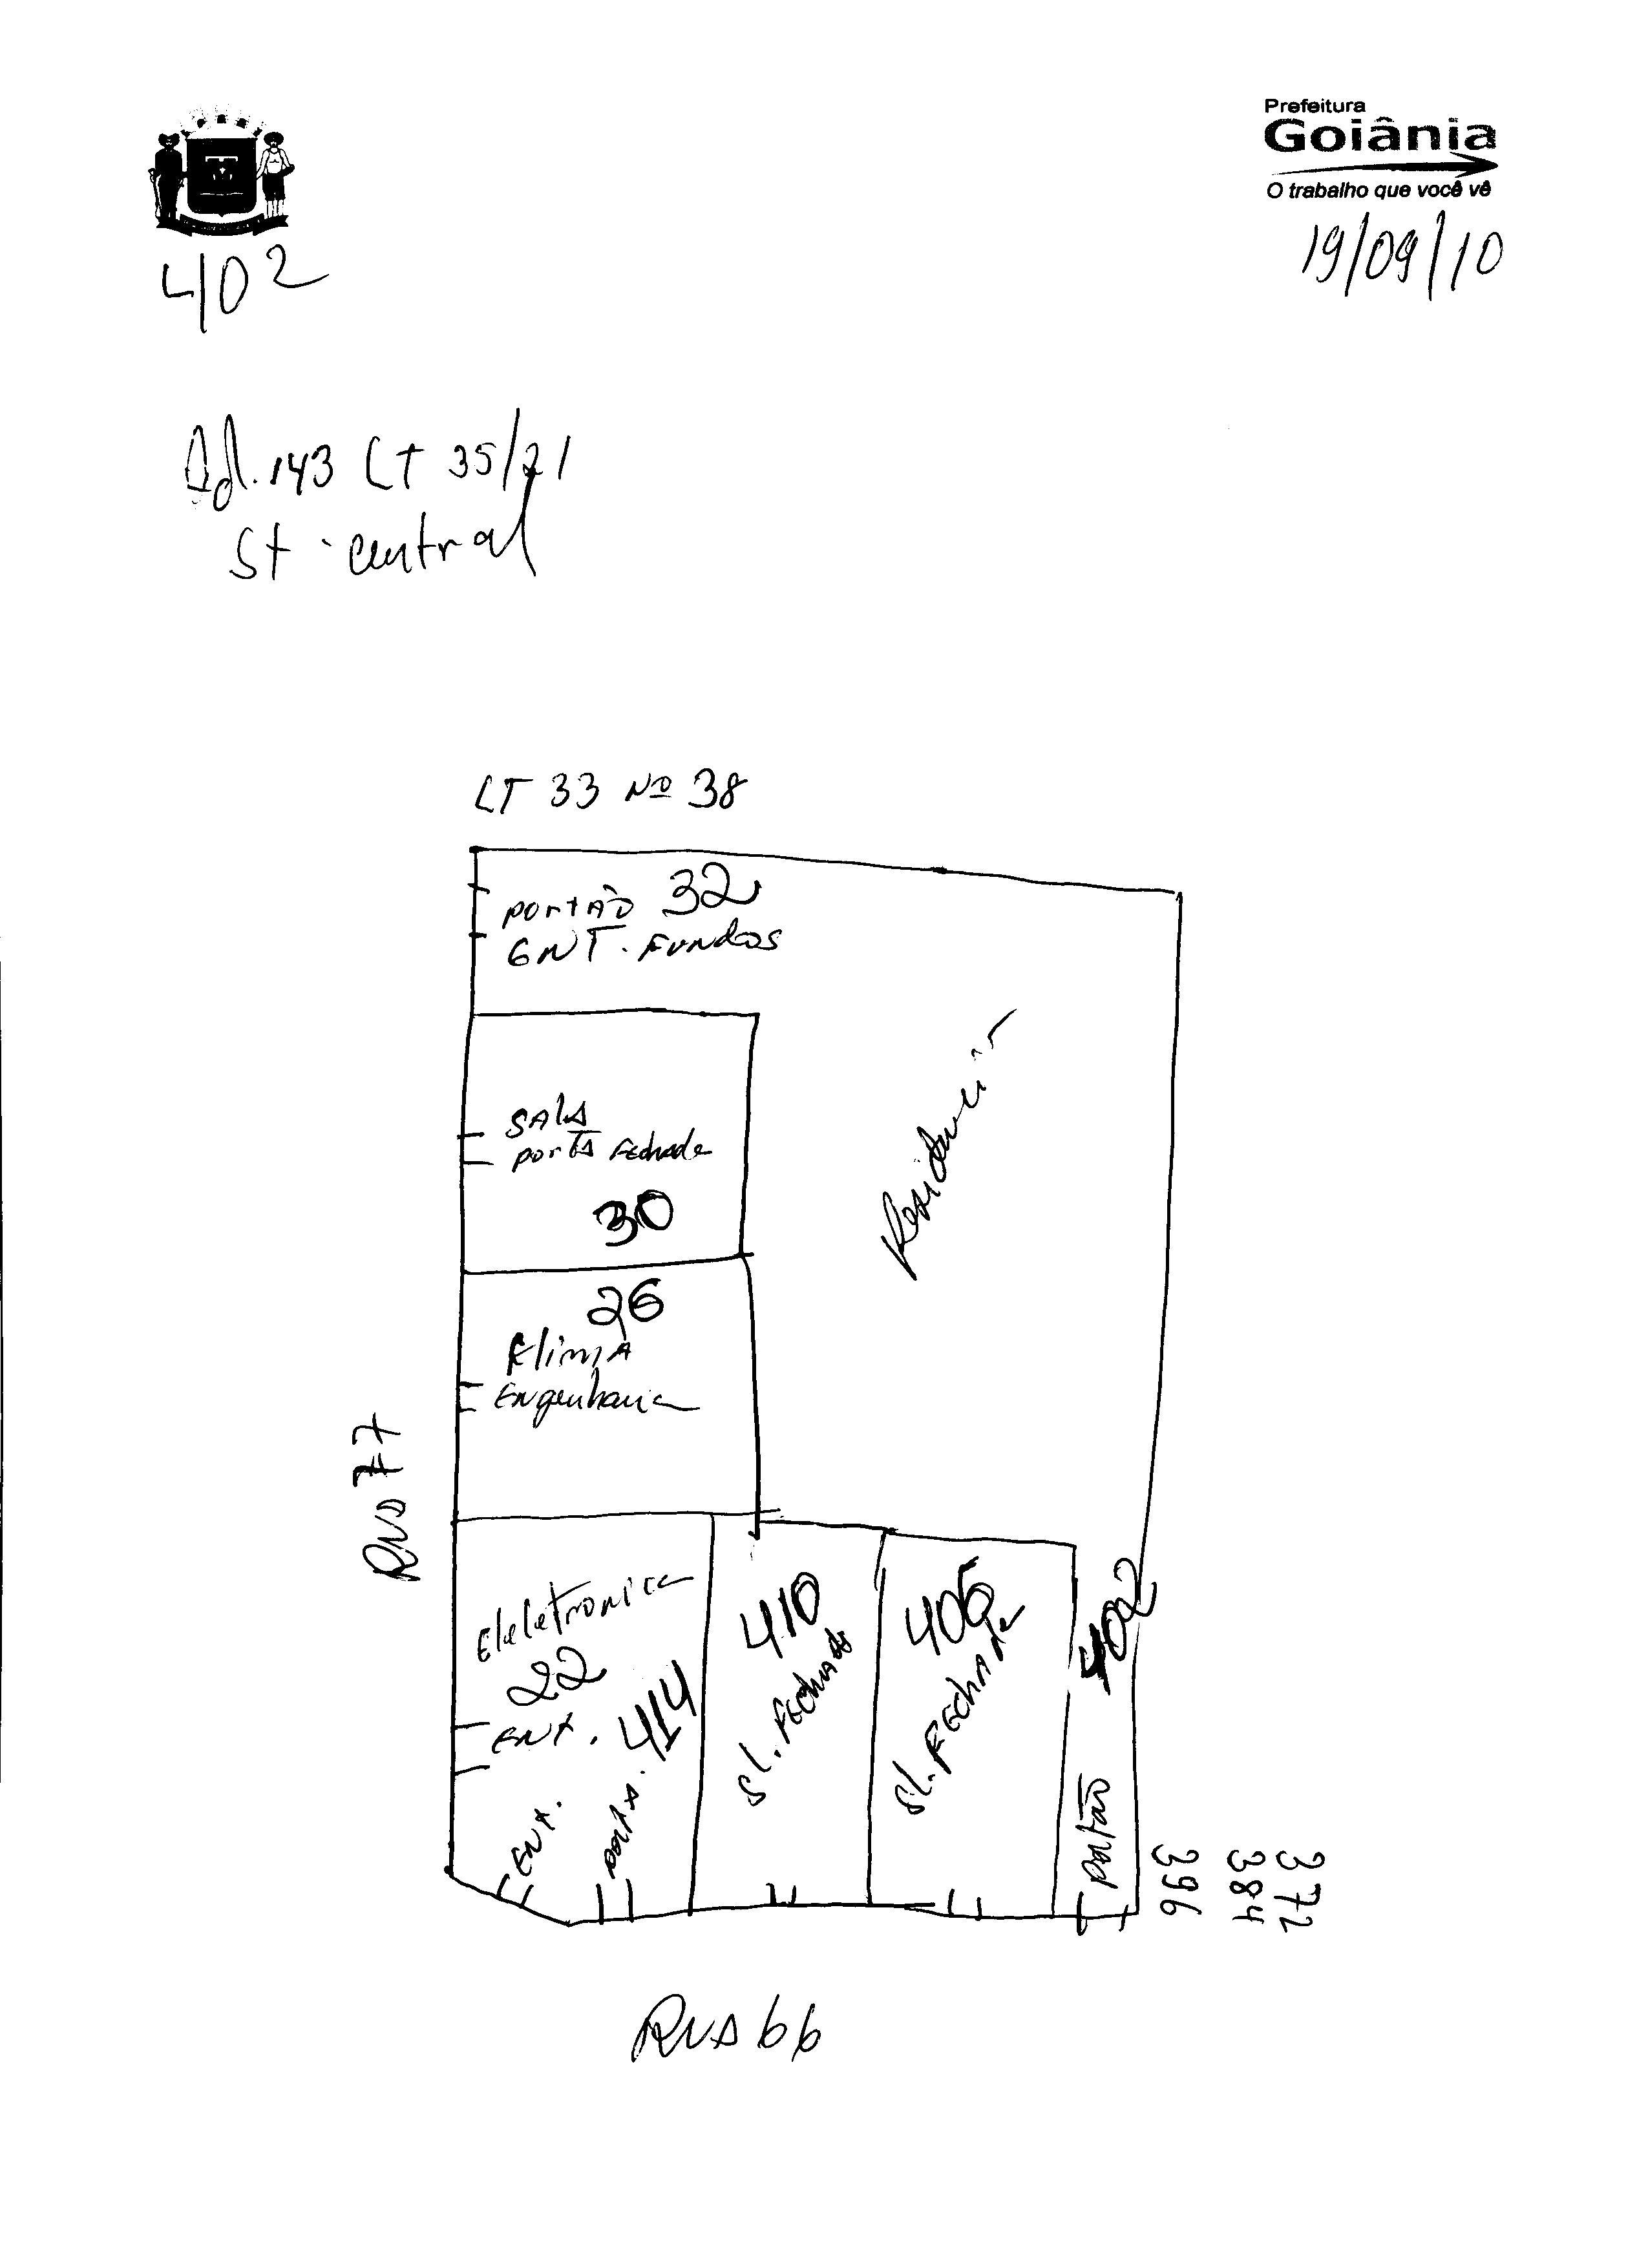 Prefeitura
Goiânia
O trabalho que você vê
19/09/10
402
Qd. 143 LT 35/21
St. central
LT 33 Nº 38
portão 32
ENT. FUNDOS
Residencia
SALA
porta Fechada
30
26
Klima
Engenharia
RUA 77
Eleletronica
22
ENT.
414
ENT.
porta.
410
sl. Fechada
406
sl. Fechada
402
portão
396
384
372
RUA 66